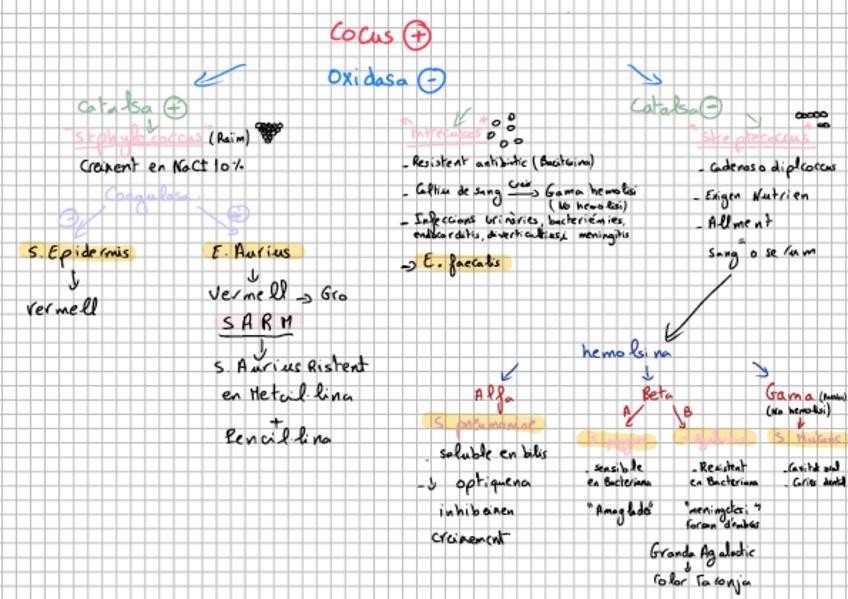 Cocus +
Oxidasa -
Catalsa +
"Stphylococcus" (Raïm)
Creixent en NaCl 10%
Coagulasa
-
+
S. Epidermis
vermell
E. Aurius
Vermell → Gro
SARM
S. Aurius Ristent
en Metcil·lina
+
Pencil·lina
- Resistent antibiotic (Bacitricina)
- Cultiu de sang Creix → Gama hemolisi
(No hemolisi)
- Infeccions urinàries, bacterièmies,
endocarditis, meningitis
→ E. faecalis
Catalsa -
"Streptococcus"
- Cadenas o diplococcus
- Exigen Nutrien
- Aliment
Sang o serum
hemolsina
Alfa
S. pneumoniae
. soluble en bilis
- ↓ optiquena
inhibeixen
creixement
Beta
A
B
. sensible
en Bacteriana
- Resistent
en Bacteriana
Color Taronja
Gama
(No hemolisi)
S. Mutans
- Cavitat oral
- Caries dental